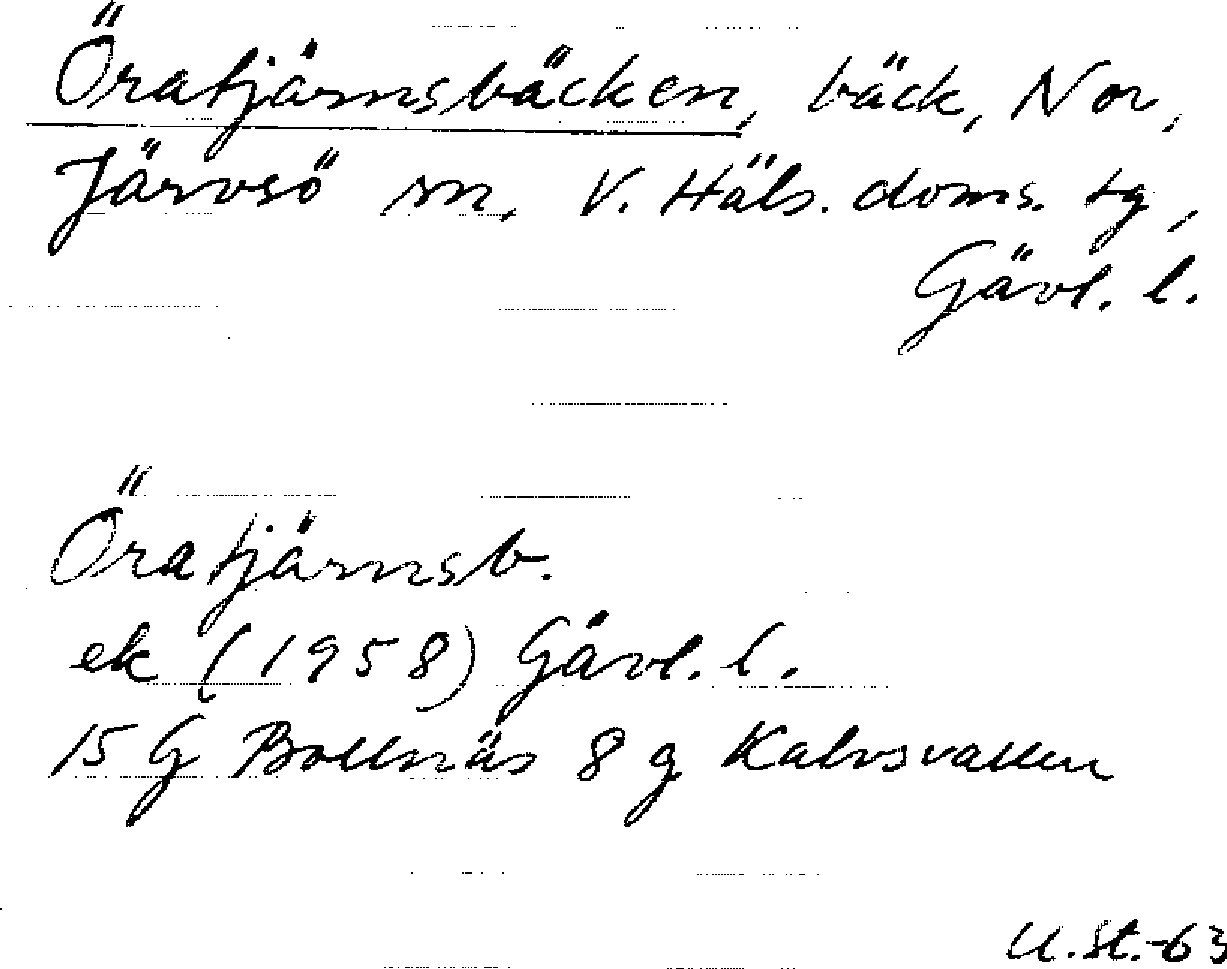 Öratjärnsbäcken, bäck, Nor,
Järvsö sn, V. Häls. doms. tg,
Gävl. l.
Öratjärnsb.
ek (1958) Gävl. l.
15 G Bollnäs 8 g Kalvsvallen
U.St.-63